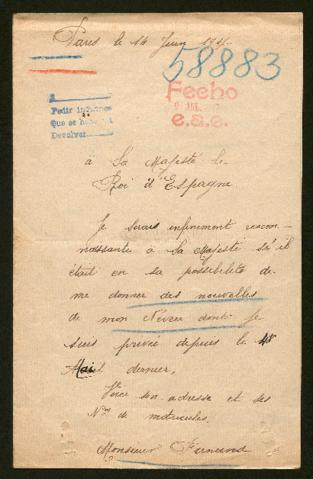 Paris le 14 Juin
58883
Fecho
e.a.e.
Pedir informes
Que se
Devolver
à Sa Majesté le
Roi d'Espagne
Je serais infiniment recon-
naissante à Sa Majesté s'il
était en sa possibilité de
me donner des nouvelles
de mon Neveu dont je
suis privée depuis le
dernier.
Voici son adresse et ses
Nos de matricules.
Monsieur Fernand